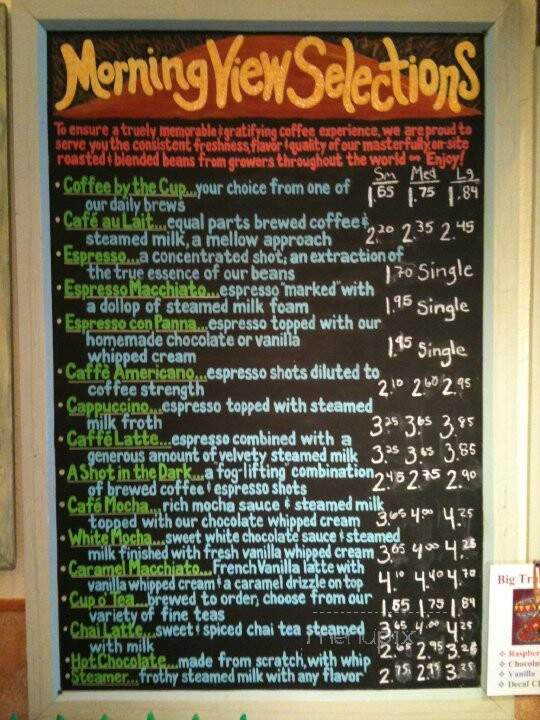 Morning View Selections
To ensure a truely memorable & gratifying coffee experience, we are proud to
serve you the consistent freshness, flavor & quality of our masterfully, on-site
roasted & blended beans from growers throughout the world ~ Enjoy!
Sm Med Lg
• Coffee by the Cup...your choice from one of 1.65 1.75 1.84
our daily brews
• Café au Lait...equal parts brewed coffee & 2.20 2.35 2.45
steamed milk, a mellow approach
• Espresso...a concentrated shot; an extraction of
the true essence of our beans 1.70 Single
• Espresso Macchiato...espresso "marked" with
a dollop of steamed milk foam 1.95 Single
• Espresso con Panna...espresso topped with our
homemade chocolate or vanilla 1.95 Single
whipped cream
• Caffè Americano...espresso shots diluted to
coffee strength 2.10 2.60 2.95
• Cappuccino...espresso topped with steamed
milk froth 3.25 3.65 3.85
• Caffé Latte...espresso combined with a
generous amount of velvety steamed milk 3.25 3.65 3.85
• A Shot in the Dark...a fog-lifting combination
of brewed coffee & espresso shots 2.45 2.75 2.90
• Café Mocha...rich mocha sauce & steamed milk
topped with our chocolate whipped cream 3.65 4.00 4.25
• White Mocha...sweet white chocolate sauce & steamed
milk finished with fresh vanilla whipped cream 3.65 4.00 4.25
• Caramel Macchiato...French Vanilla latte with
vanilla whipped cream & a caramel drizzle on top 4.10 4.40 4.70
• Cup o' Tea...brewed to order, choose from our
variety of fine teas 1.55 1.75 1.84
• Chai Latte...sweet & spiced chai tea steamed 3.65 4.00 4.25
with milk
• Hot Chocolate...made from scratch, with whip 2.65 2.95 3.25
• Steamer...frothy steamed milk with any flavor 2.75 2.95 3.25
menupix
Big Tr
Raspber
Chocola
Vanilla
Decaf C